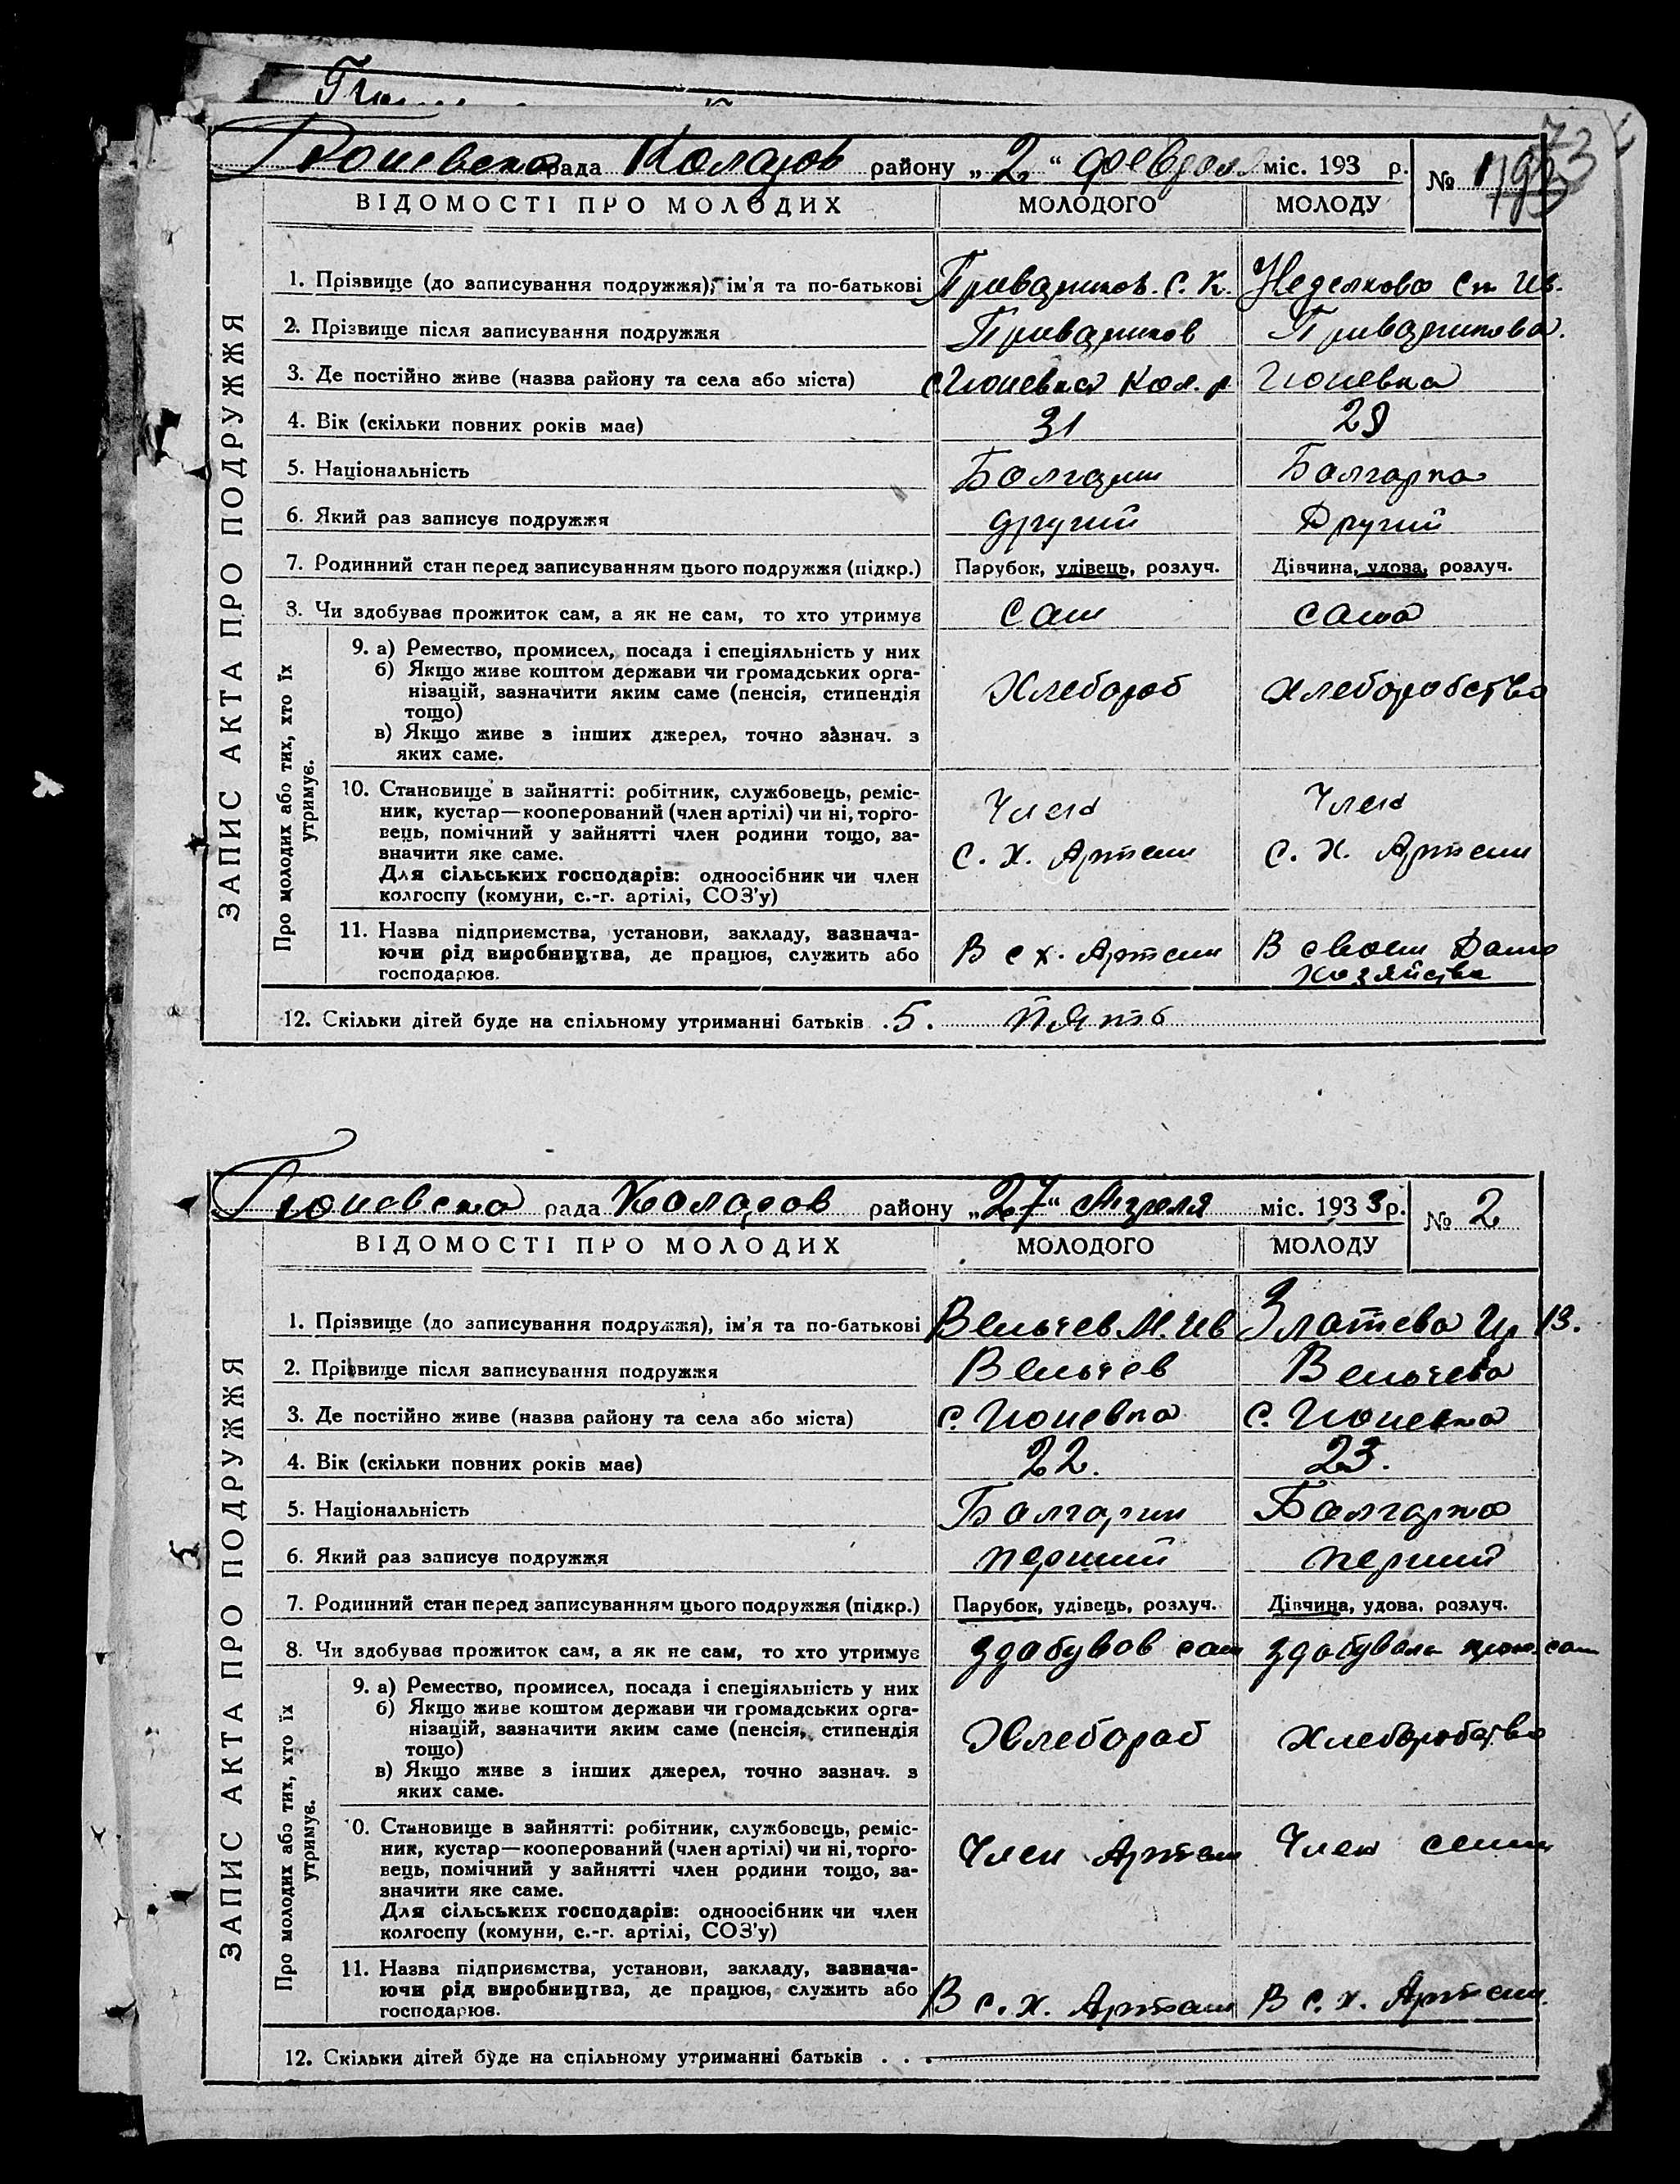 Гюневська рада Коларов району „2" февраля міс. 193 р. № 1
73
193
ВІДОМОСТІ ПРО МОЛОДИХ МОЛОДОГО МОЛОДУ
ЗАПИС АКТА ПРО ПОДРУЖЖЯ
1. Прізвище (до записування подружжя), ім'я та по-батькові С. К. Неделкова Ст Ив.
2. Прізвище після записування подружжя
3. Де постійно живе (назва району та села або міста) с. Гюневка Кол. р Гюневка
4. Вік (скільки повних років має) 31 29
5. Національність Болгарин Болгарка
6. Який раз записує подружжя другий Другий
7. Родинний стан перед записуванням цього подружжя (підкр.) Парубок, удівець, розлуч. Дівчина, удова, розлуч.
8. Чи здобував прожиток сам, а як не сам, то хто утримує сам сама
Про молодих або тих, хто їх
утримує.
9. а) Ремество, промисел, посада і спеціяльність у них
б) Якщо живе коштом держави чи громадських орга-
нізацій, зазначити яким саме (пенсія, стипендія Хлебороб Хлеборобство
тощо)
в) Якщо живе з інших джерел, точно зазнач. з
яких саме.
10. Становище в зайнятті: робітник, службовець, реміс-
ник, кустар—кооперований (член артілі) чи ні, торго- Член Член
вець, помічний у зайнятті член родини тощо, за-
значити яке саме. С. Х. Артели С. Х. Артели
Для сільських господарів: одноосібник чи член
колгоспу (комуни, с.-г. артілі, СОЗ'у)
11. Назва підприємства, установи, закладу, зазнача-
ючи рід виробництва, де працює, служить або В с х. Артели В своем Дома
господарює. хозяйства
12. Скільки дітей буде на спільному утриманні батьків . 5. пять
Гюневска рада Коларов району „27" Апреля міс. 1933 р. № 2
ВІДОМОСТІ ПРО МОЛОДИХ МОЛОДОГО МОЛОДУ
ЗАПИС АКТА ПРО ПОДРУЖЖЯ
1. Прізвище (до записування подружжя), ім'я та по-батькові Вельчев М. Ив Златева
2. Прізвище після записування подружжя Вельчев Вельчева
3. Де постійно живе (назва району та села або міста) с. Гюневка С. Гюневка
4. Вік (скільки повних років має) 22. 23.
5. Національність Болгарин Болгарка
6. Який раз записує подружжя перший перший
7. Родинний стан перед записуванням цього подружжя (підкр.) Парубок, удівець, розлуч. Дівчина, удова, розлуч.
8. Чи здобував прожиток сам, а як не сам, то хто утримує здобував сам здобувала сам
Про молодих або тих, хто їх
утримує.
9. а) Ремество, промисел, посада і спеціяльність у них
б) Якщо живе коштом держави чи громадських орга-
нізацій, зазначити яким саме (пенсія, стипендія Хлебороб Хлеборобство
тощо)
в) Якщо живе з інших джерел, точно зазнач. з
яких саме.
10. Становище в зайнятті: робітник, службовець, реміс-
ник, кустар—кооперований (член артілі) чи ні, торго- Член Артели Член семьи
вець, помічний у зайнятті член родини тощо, за-
значити яке саме.
Для сільських господарів: одноосібник чи член
колгоспу (комуни, с.-г. артілі, СОЗ'у)
11. Назва підприємства, установи, закладу, зазнача-
ючи рід виробництва, де працює, служить або В с. х. Артели В с. х. Артели.
господарює.
12. Скільки дітей буде на спільному утриманні батьків . . .